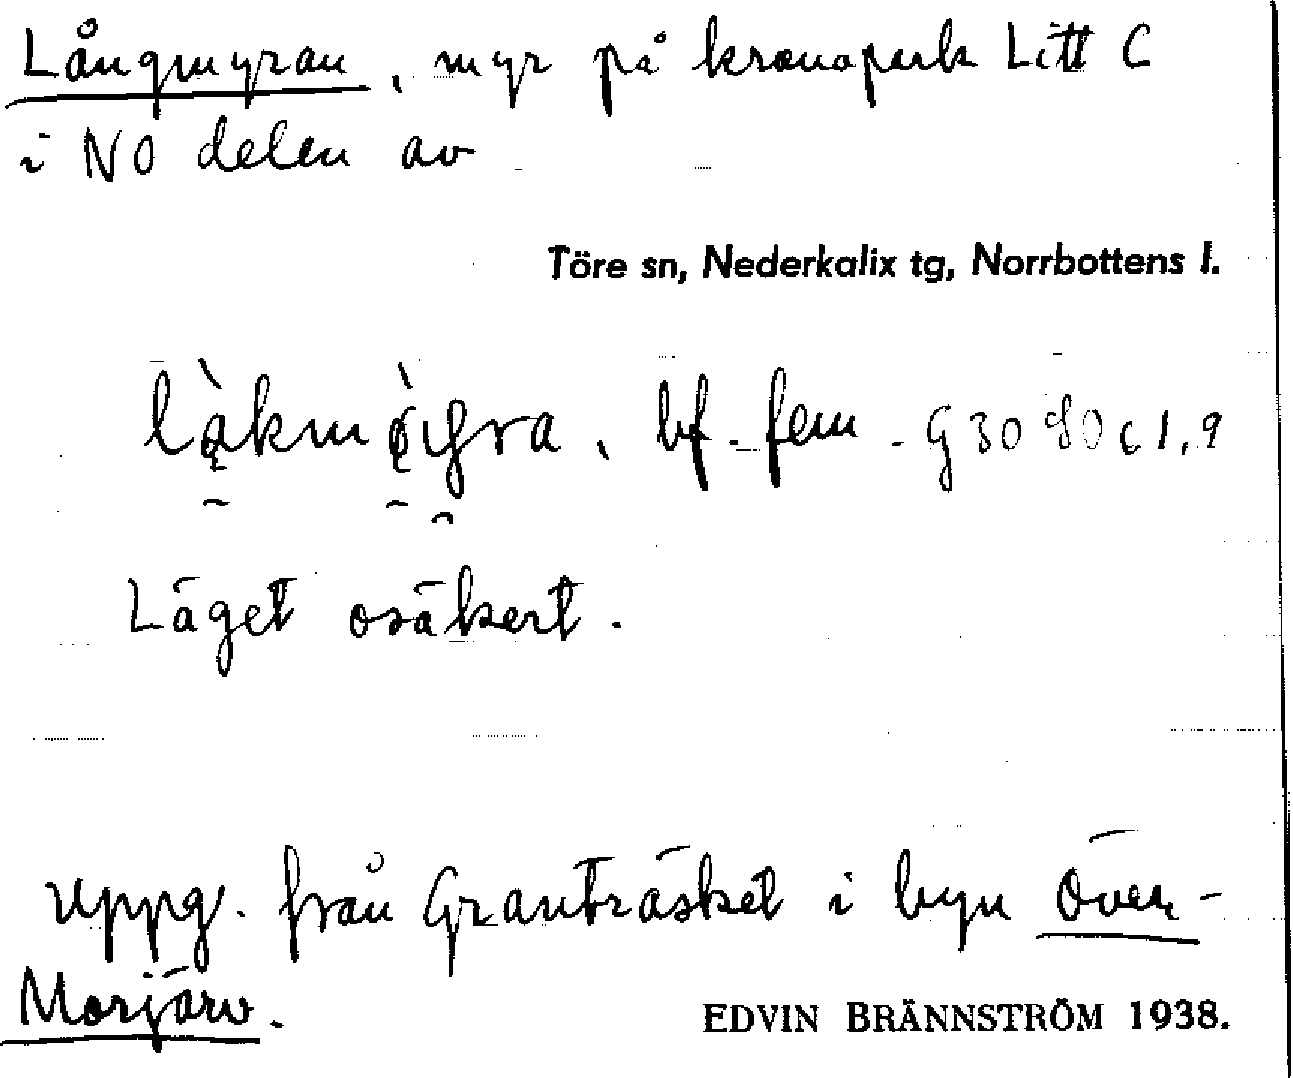 Långmyran, myr på kronopark Litt C
i NO delen av
Töre sn, Nederkalix tg, Norrbottens l.
bf. fem. G 30 80 c 1,9
Läget osäkert.
uppg. från Granträsket i byn Över-
Morjärv.
EDVIN BRÄNNSTRÖM 1938.